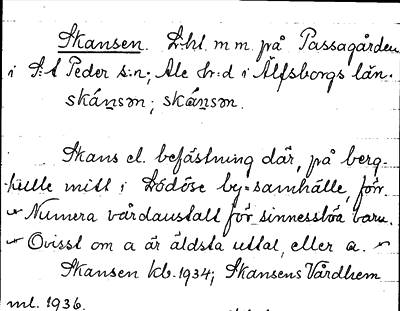 Skansen. Lht. m.m. på Passagården
i S:t Peder s:n; Ale hr:d i Älfsborgs län.
skánsən; skánsən.
Skans el. befästning där, på berg-
kulle mitt i Lödöse by=samhälle, förr.
Numera vårdanstalt för sinnesslöa barn.
Ovisst om a är äldsta uttal, eller a.
Skansen kb. 1934; Skansens Vårdhem
ml. 1936.